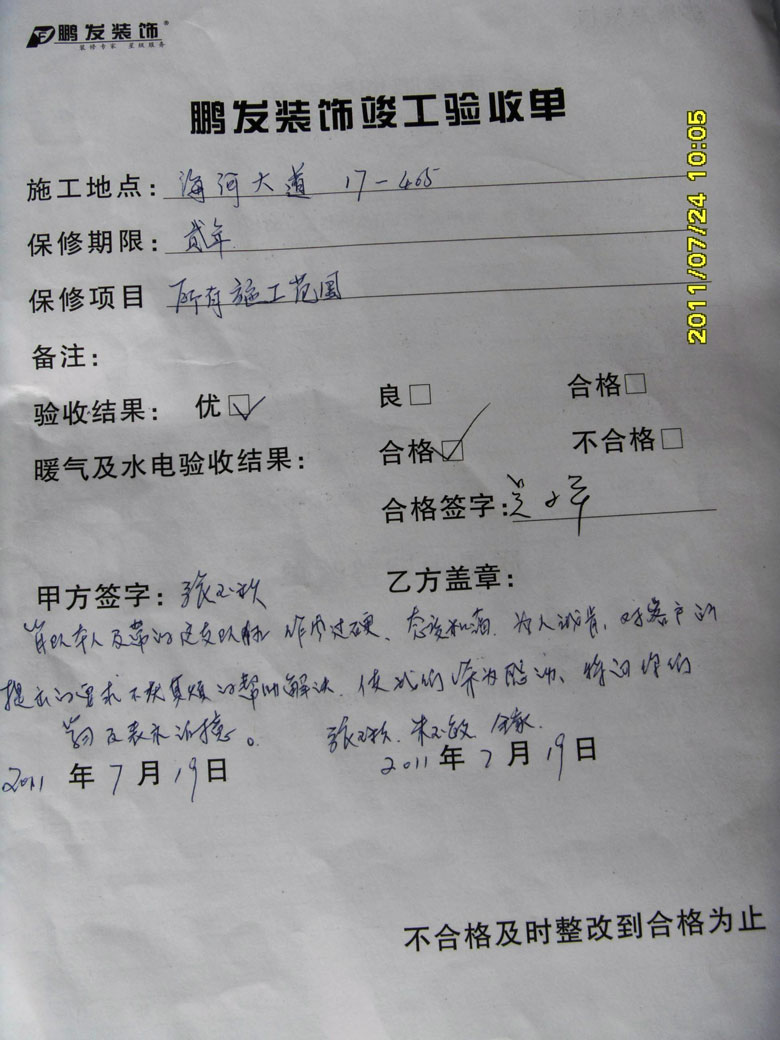 鹏发装饰®
装修专家 星级服务
鹏发装饰竣工验收单
施工地点: 海河大道 17-465
保修期限: 贰年
保修项目 所有施工范围
备注:
验收结果: 优☑ 良□ 合格□
暖气及水电验收结果: 合格☑ 不合格□
合格签字:
甲方签字: 张玉秋 乙方盖章:
本人及带的这支队伍 作风过硬、态度和蔼、为人诚肯,对客户的
提出的要求不厌其烦的帮助解决,使我们深为感动、特词你们
及表示
张玉秋. 朱玉敏
2011年7月19日 2011年7月19日
不合格及时整改到合格为止
2011/07/24 10:05